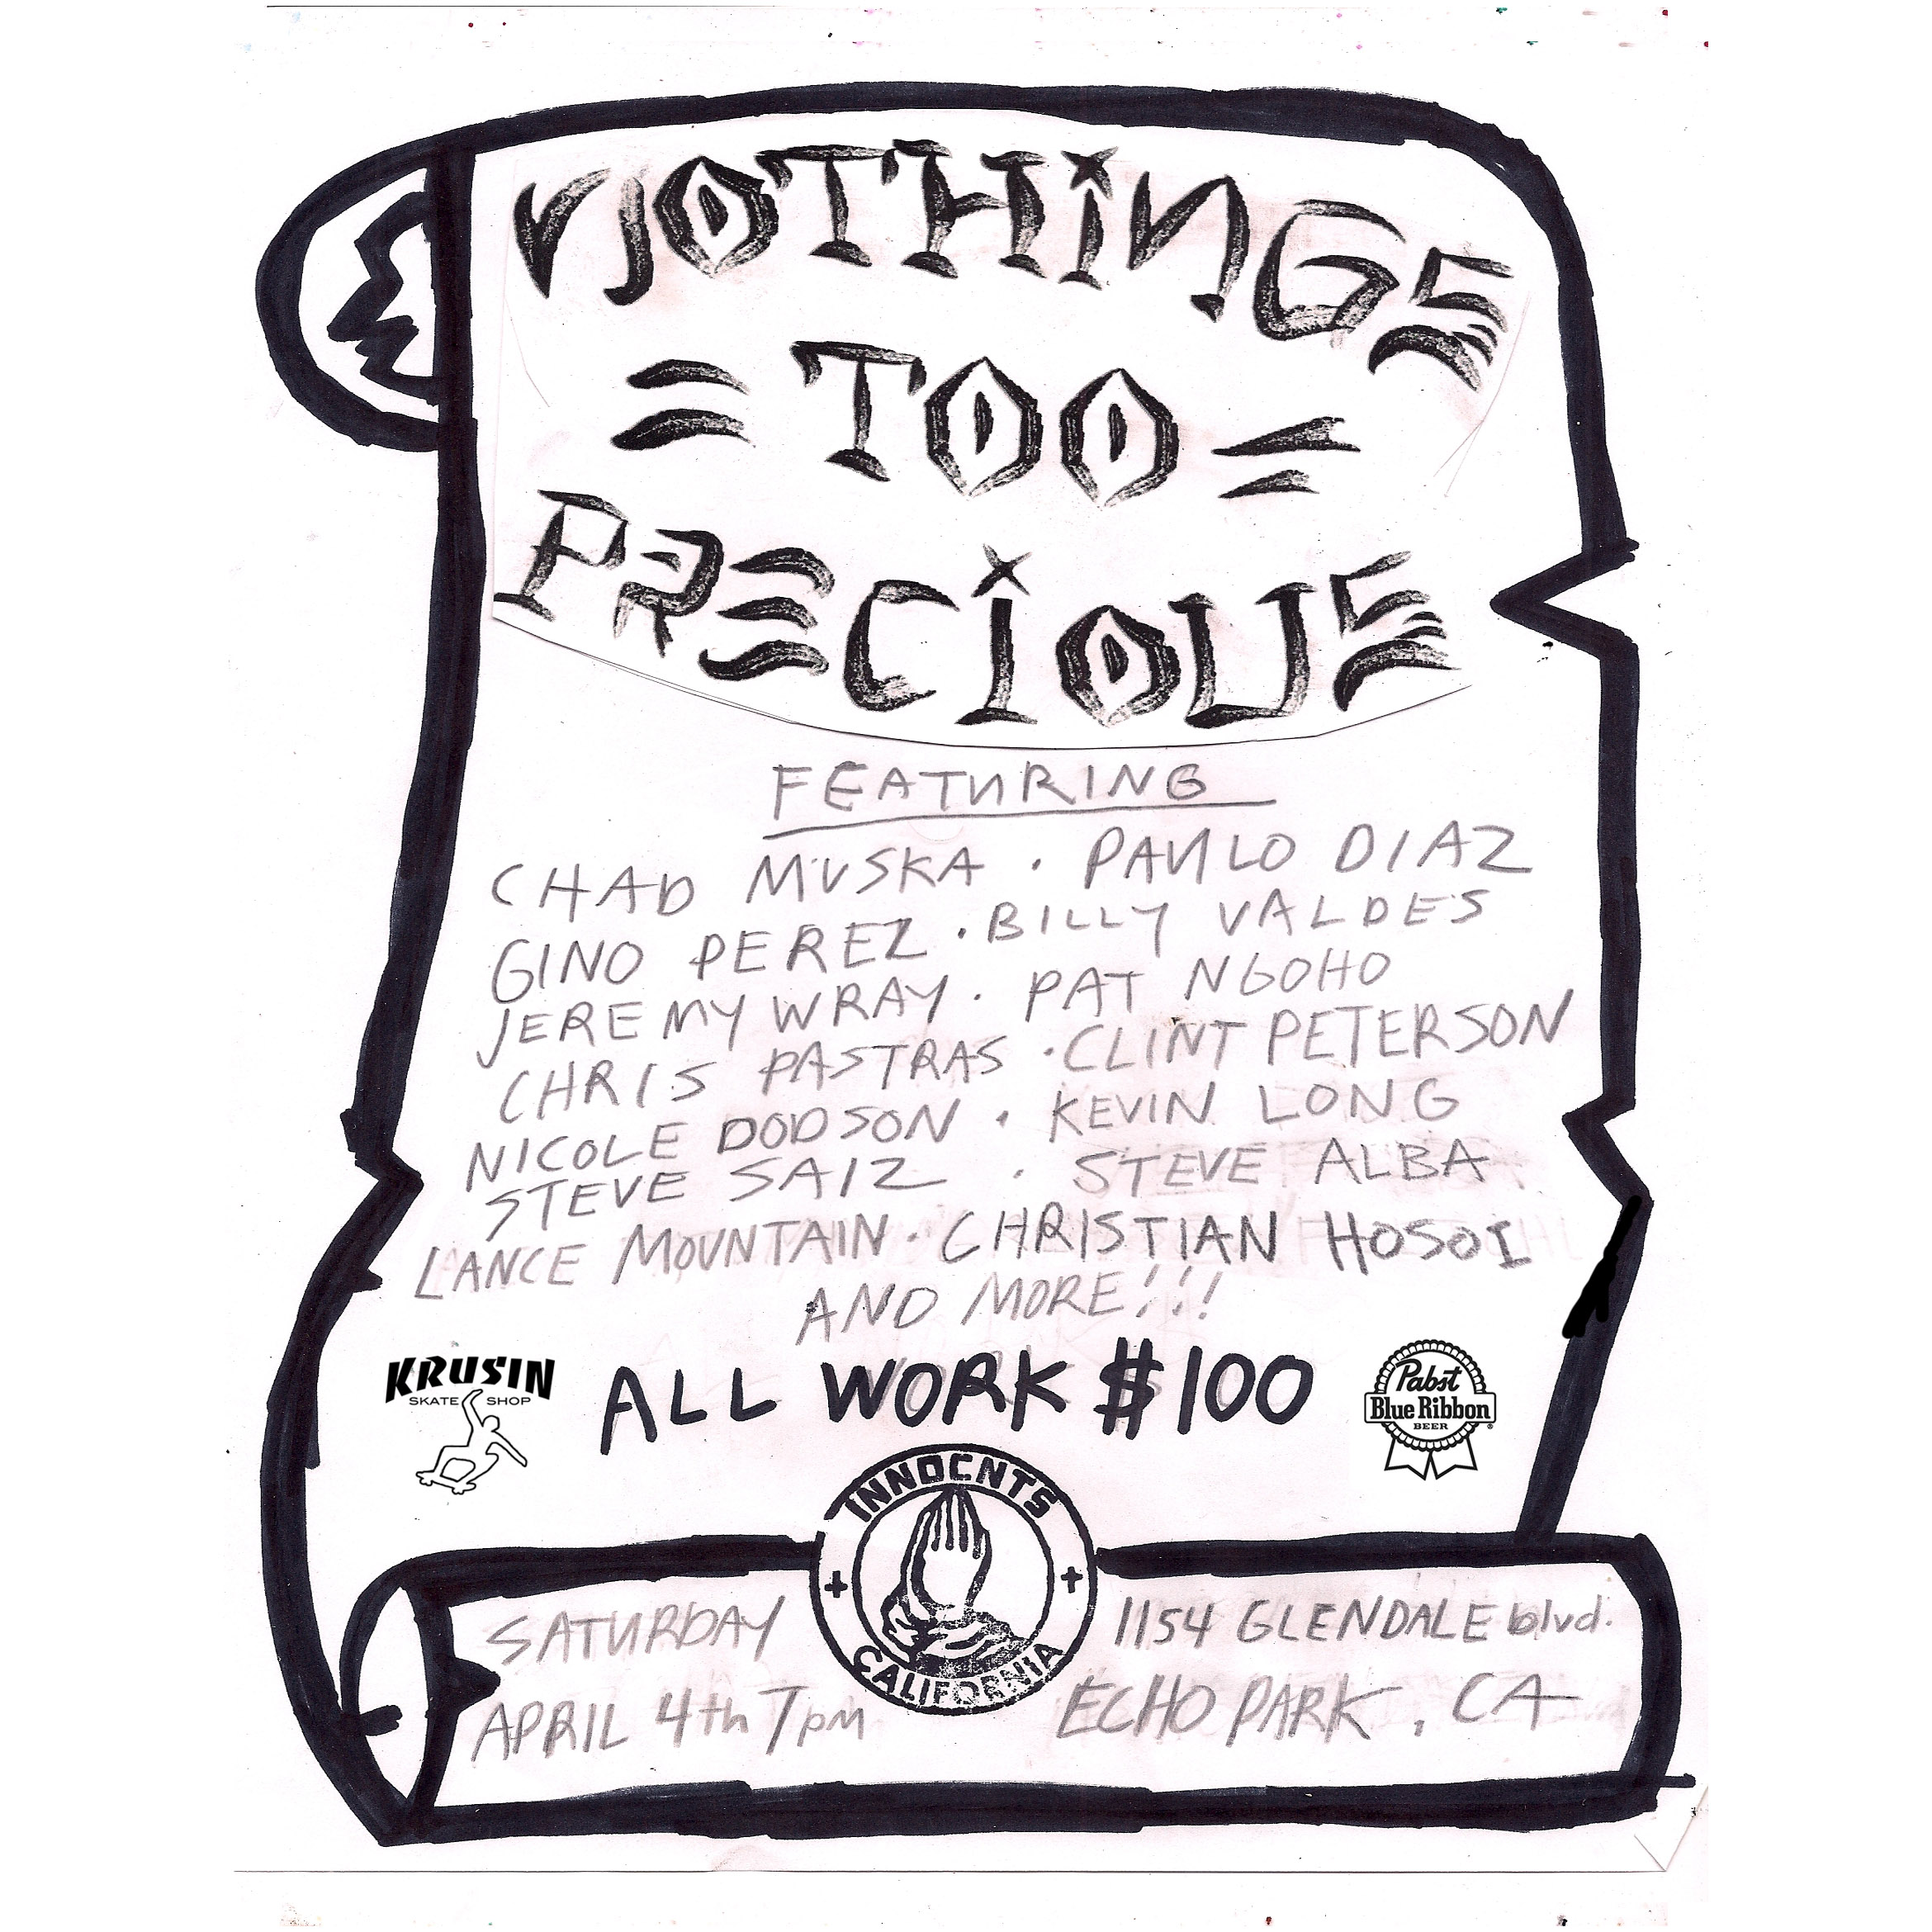 NOTHINGS
= TOO =
PRECIOUS
FEATURING
CHAD MUSKA · PAULO DIAZ
GINO PEREZ · BILLY VALDES
JEREMY WRAY · PAT NGOHO
CHRIS PASTRAS · CLINT PETERSON
NICOLE DODSON · KEVIN LONG
STEVE SAIZ · STEVE ALBA
LANCE MOUNTAIN · CHRISTIAN HOSOI
AND MORE!!!
ALL WORK $100
KRUSIN
SKATE SHOP
Pabst
Blue Ribbon
BEER
INNOCNTS
CALIFORNIA
SATURDAY
APRIL 4th 7pm
1154 GLENDALE blvd.
ECHO PARK, CA